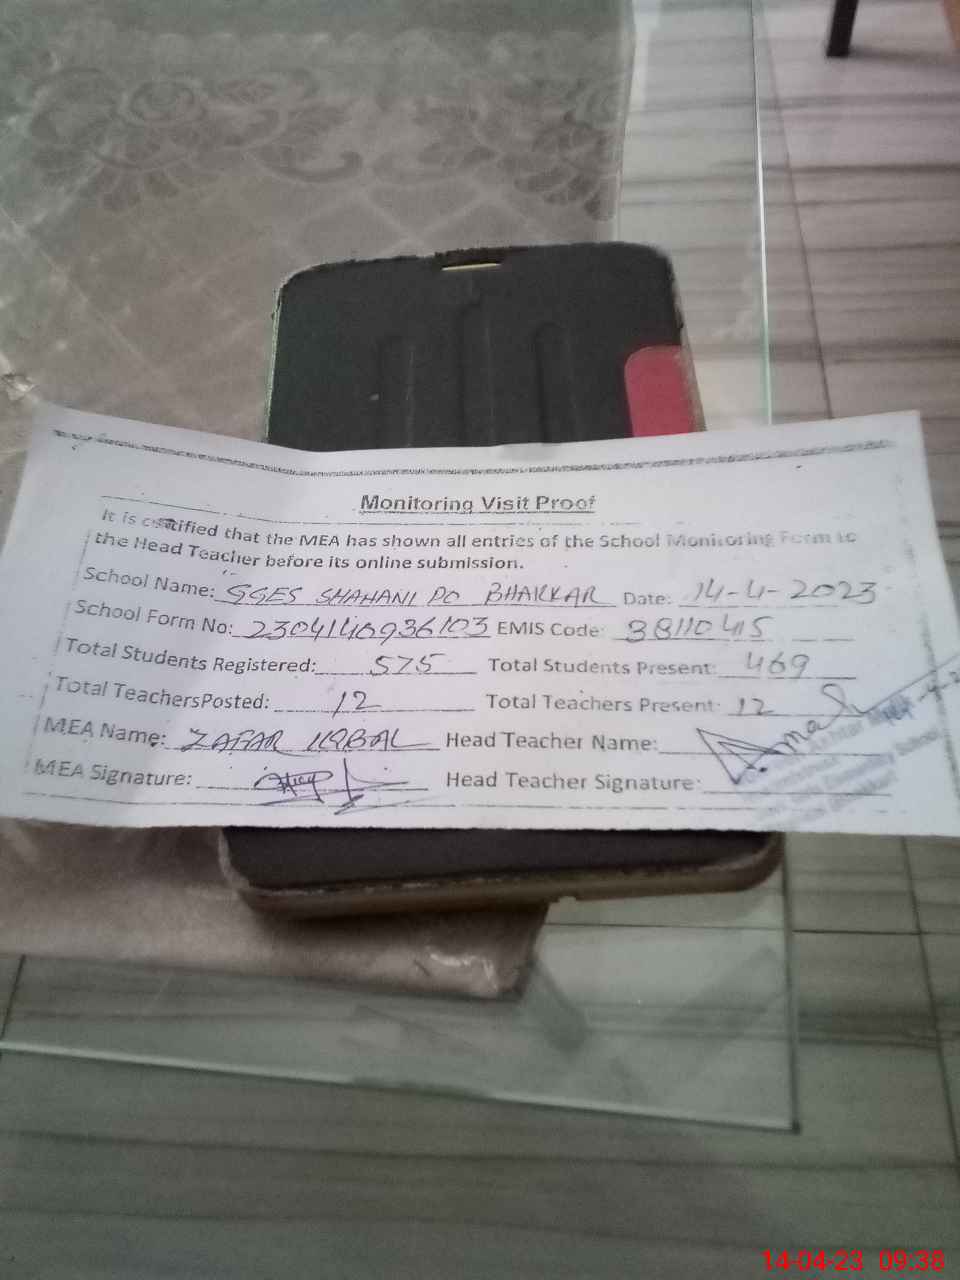 Monitoring Visit Proof
It is certified that the MEA has shown all entries of the School Monitoring Form to
the Head Teacher before its online submission.
School Name: GGES SHAHANI PO BHAKKAR Date: 14-4-2023
School Form No: 2304140936103 EMIS Code: 38110415
Total Students Registered: 575 Total Students Present: 469
Total TeachersPosted: 12 Total Teachers Present: 12
MEA Name: ZAFAR IQBAL Head Teacher Name:
MEA Signature: Head Teacher Signature:
14-04-23 09:38